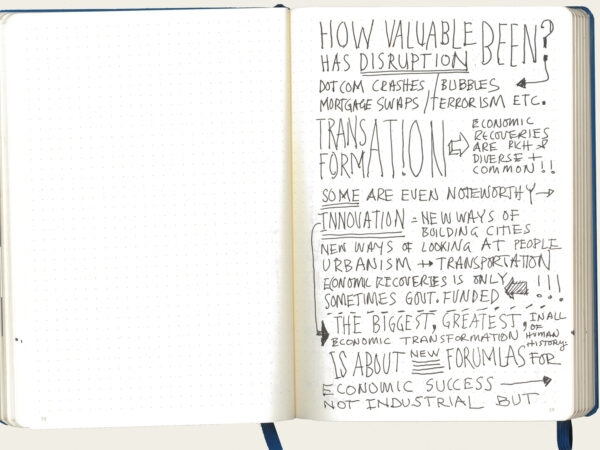 HOW VALUABLE
HAS DISRUPTION BEEN?
DOTCOM CRASHES / BUBBLES
MORTGAGE SWAPS / TERRORISM ETC.
TRANS
FORMATION
ECONOMIC
RECOVERIES
ARE RICH &
DIVERSE +
COMMON!!
SOME ARE EVEN NOTEWORTHY →
INNOVATION = NEW WAYS OF
BUILDING CITIES
NEW WAYS OF LOOKING AT PEOPLE
URBANISM ↔ TRANSPORTATION
ECONOMIC RECOVERIES IS ONLY
SOMETIMES GOVT. FUNDED ⇐ !!!
THE BIGGEST, GREATEST,
IN ALL
OF
HUMAN
HISTORY.
ECONOMIC TRANSFORMATION
IS ABOUT NEW FORUMLAS FOR
ECONOMIC SUCCESS →
NOT INDUSTRIAL BUT